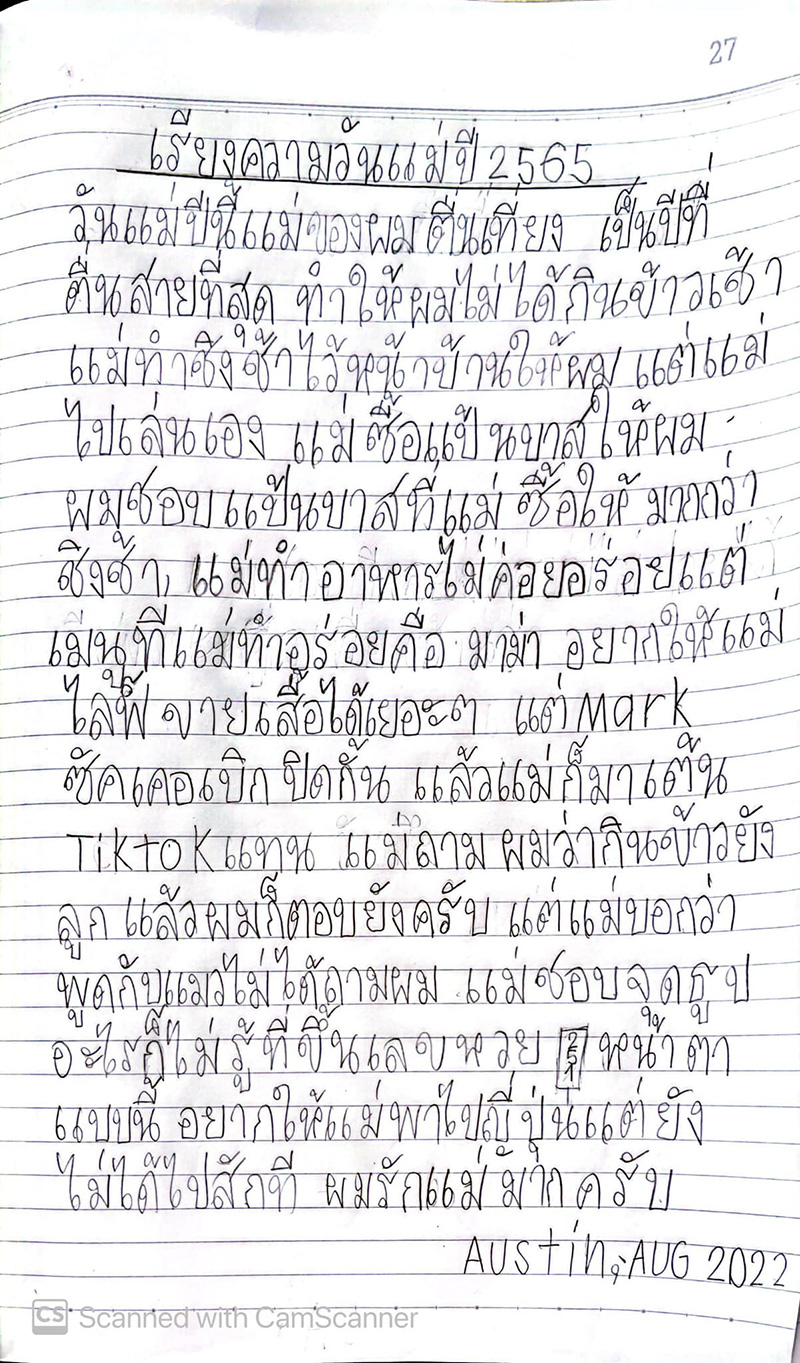 27
เรียงความวันแม่ปี 2565
วันแม่ปีนี้แม่ของผมตื่นเที่ยง เป็นปีที่
ตื่นสายที่สุด ทำให้ผมไม่ได้กินข้าวเช้า
แม่ทำชิงช้าไว้หน้าบ้านให้ผม แต่แม่
ไปเล่นเอง แม่ซื้อแป้นบาสให้ผม
ผมชอบแป้นบาสที่แม่ซื้อให้มากกว่า
ชิงช้า, แม่ทำอาหารไม่ค่อยอร่อยแต่
เมนูที่แม่ทำอร่อยคือ มาม่า อยากให้แม่
ไลฟ์ ขายเสื้อได้เยอะๆ แต่ Mark
ซัคเคอเบิก ปิดกั้น แล้วแม่ก็มาเต้น
Tiktok แทน แม่ถามผมว่ากินข้าวยัง
ลูก แล้วผมก็ตอบยังครับ แต่แม่บอกว่า
พูดกับแมวไม่ได้ถามผม แม่ชอบจุดธูป
อะไรก็ไม่รู้ที่ขึ้นเลขหวย หน้าตา
แบบนี้ อยากให้แม่พาไปญี่ปุ่นแต่ยัง
ไม่ได้ไปสักที ผมรักแม่มากครับ
Austin, AUG 2022
CS Scanned with CamScanner